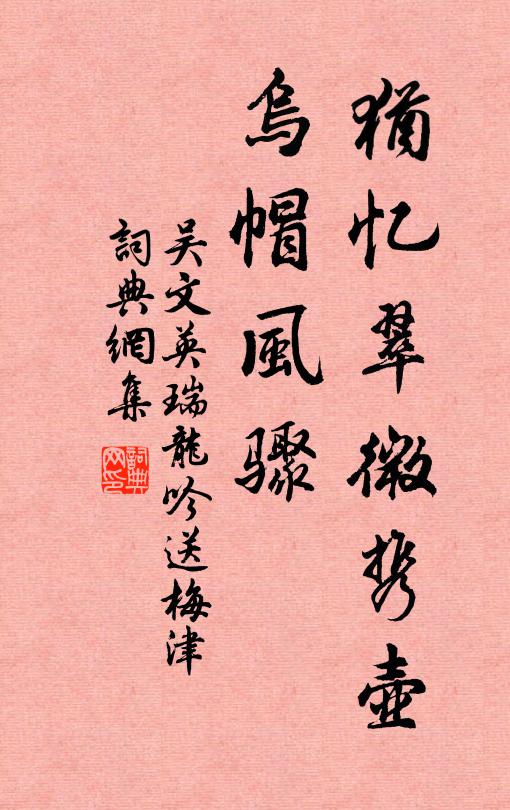 猶忆翠微携壺
烏帽風骤
吴文英瑞龍吟送梅津
詞典網集
詞典网印